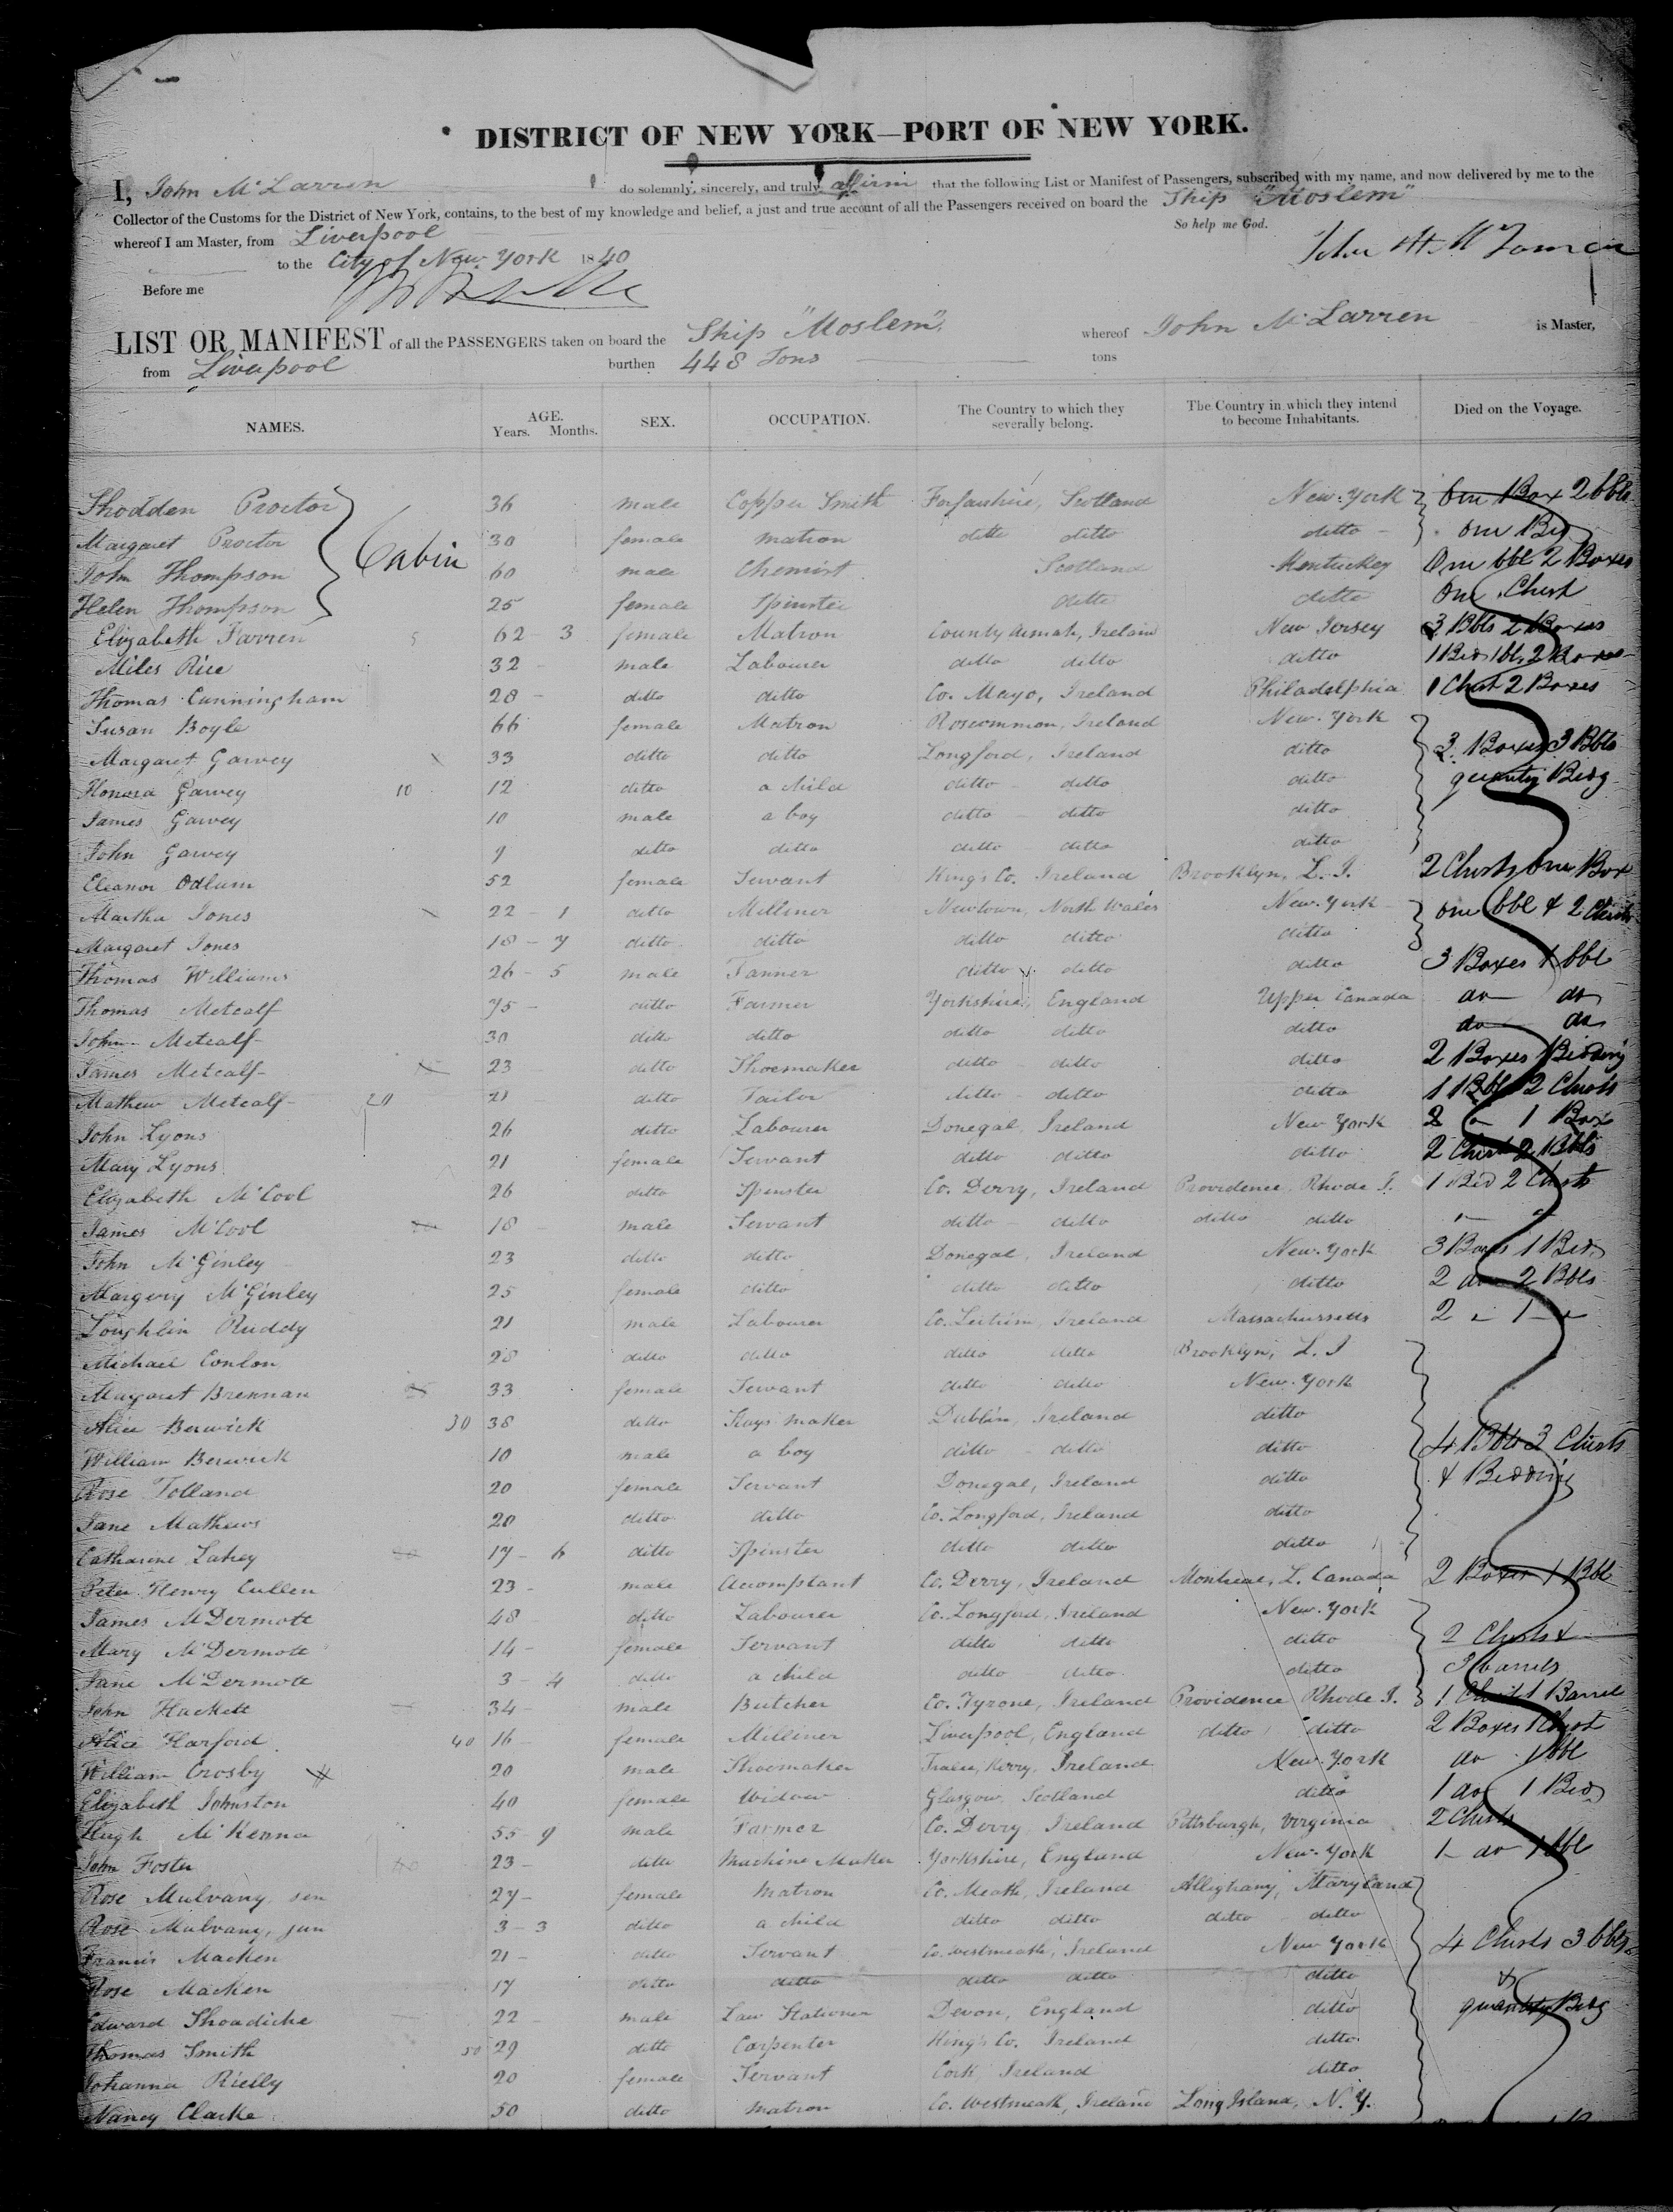 DISTRICT OF NEW YORK—PORT OF NEW YORK.
I, John McLarren do solemnly, sincerely, and truly affirm that the following List or Manifest of Passengers, subscribed with my name, and now delivered by me to the
Collector of the Customs for the District of New York, contains, to the best of my knowledge and belief, a just and true account of all the Passengers received on board the Ship "Moslem"
whereof I am Master, from Liverpool So help me God.
to the City of New York 1840
Before me
LIST OR MANIFEST of all the PASSENGERS taken on board the Ship "Moslem" whereof John McLarren is Master,
from Liverpool burthen 448 Tons tons
NAMES. AGE. Years. Months. SEX. OCCUPATION. The Country to which they severally belong. The Country in which they intend to become Inhabitants. Died on the Voyage.
Shodden Proctor 36 male Copper Smith Forfarshire, Scotland New York One Box 2 bbls
Margaret Proctor 30 female matron ditto ditto ditto one Bed
Cabin
John Thompson 60 male Chemist Scotland Kentuckey One bbl 2 Boxes
Helen Thompson 25 female Spinster ditto ditto One Chest
Elizabeth Farren 5 62 - 3 female Matron County Armah, Ireland New Jersey 3 Bbls 2 Boxes
Miles Rice 32 - male Labourer ditto ditto ditto 1 Bed 1 bl. 2 Boxes
Thomas Cunningham 28 - ditto ditto Co. Mayo, Ireland Philadelphia 1 Chest 2 Boxes
Susan Boyle 66 female Matron Roscommon, Ireland New York
Margaret Garvey 33 ditto ditto Longford, Ireland ditto 3 Boxes 3 Bbls
Honora Garvey 10 12 ditto a child ditto ditto ditto quantity Bedg
James Garvey 10 male a boy ditto ditto ditto
John Garvey 9 ditto ditto ditto ditto ditto
Eleanor Odlum 52 female Servant King's Co. Ireland Brooklyn, L. I. 2 Chests One Box
Martha Jones 22 - 1 ditto Milliner Newtown, North Wales New York one bbl & 2 Chests
Margaret Jones 18 - 7 ditto ditto ditto ditto ditto
Thomas Williams 26 - 5 male Tanner ditto ditto ditto 3 Boxes 1 bbl
Thomas Metcalf 75 - ditto Farmer Yorkshire, England Upper Canada do do
John Metcalf 30 ditto ditto ditto ditto ditto do do
James Metcalf 23 ditto Shoemaker ditto ditto ditto 2 Boxes Bedding
Mathew Metcalf 20 21 ditto Tailor ditto ditto ditto 1 Bbl 2 Chests
John Lyons 26 ditto Labourer Donegal, Ireland New York 2 1 Box
Mary Lyons 21 female Servant ditto ditto ditto 2 Chests 2 Bbls
Elizabeth McCool 26 ditto Spinster Co. Derry, Ireland Providence, Rhode I. 1 Bed 2 Chests
James McCool 18 - male Servant ditto ditto ditto ditto
John McGinley 23 ditto ditto Donegal, Ireland New York 3 Boxes 1 Bed
Margery McGinley 25 female ditto ditto ditto ditto 2 do 2 Bbls
Loughlin Ruddy 21 male Labourer Co. Leitrim, Ireland Massachussetts 2 1
Michael Conlon 28 ditto ditto ditto ditto Brooklyn, L. I
Margaret Brennan 33 female Servant ditto ditto New York
Alice Berwick 30 38 ditto Stays maker Dublin, Ireland ditto
William Berwick 10 male a boy ditto ditto ditto 4 Bbls 3 Chests
Rose Tolland 20 female Servant Donegal, Ireland ditto & Bedding
Jane Mathews 20 ditto ditto Co. Longford, Ireland ditto
Catharine Lahey 17 - 6 ditto Spinster ditto ditto ditto
Peter Henry Cullen 23 - male Accomptant Co. Derry, Ireland Montreal, L. Canada 2 Boxes 1 Bbl
James McDermott 48 ditto Labourer Co. Longford, Ireland New York
Mary McDermott 14 - female Servant ditto ditto ditto 2 Chests &
Jane McDermott 3 - 4 ditto a child ditto ditto ditto 3 barrels
John Hackett 34 - male Butcher Co. Tyrone, Ireland Providence Rhode I. 1 Chest 1 Barrel
Alice Harford 40 16 - female Milliner Liverpool, England ditto ditto 2 Boxes 1 Chest
William Crosby 20 male Shoemaker Tralee, Kerry, Ireland New York do 1 bbl
Elizabeth Johnston 40 female Widow Glasgow, Scotland ditto 1 do 1 Bed
Hugh McKenna 55 - 9 male Farmer Co. Derry, Ireland Pittsburgh, Virginia 2 Chests
John Foster 23 - ditto Machine Maker Yorkshire, England New York 1 do 1 bbl
Rose Mulvany, sen 27 - female Matron Co. Meath, Ireland Alleghany, Maryland
Rose Mulvany, jun 3 - 3 ditto a child ditto ditto ditto ditto
Francis Macken 21 - ditto Servant Co. Westmeath, Ireland New York 4 Chests 3 bbls
Rose Macken 17 ditto ditto ditto ditto ditto &
Edward Shoadiche 22 - male Law Stationer Devon, England ditto quantity Bedg
Thomas Smith 50 29 ditto Carpenter King's Co. Ireland ditto
Johanna Rielly 20 female Servant Cork, Ireland ditto
Nancy Clarke 50 ditto matron Co. Westmeath, Ireland Long Island, N. Y.